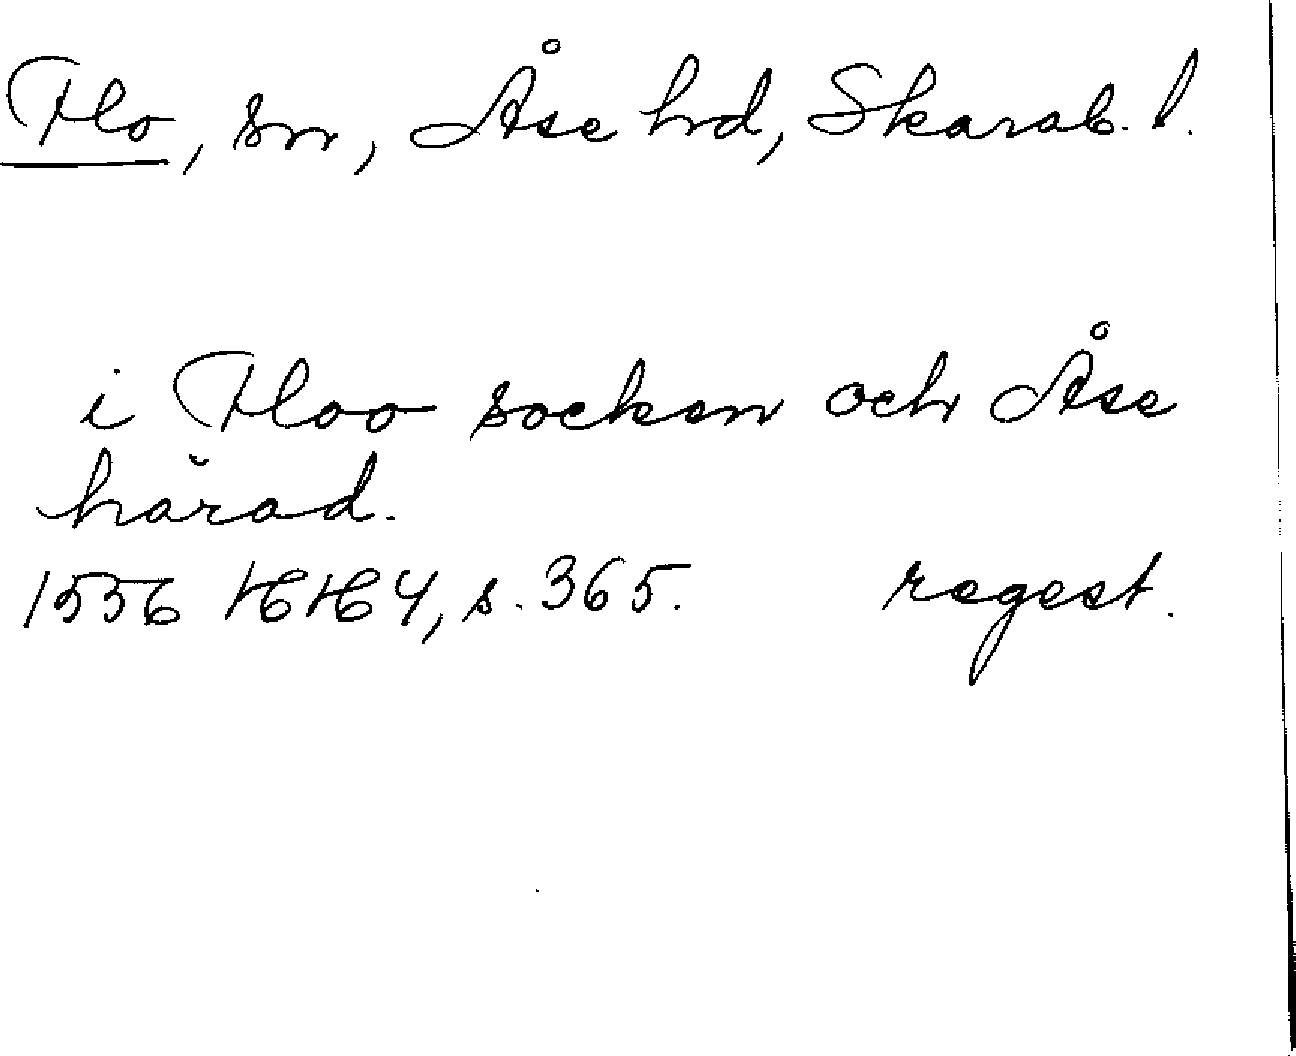 Flo, sn, Åse hd, Skarab. l.
i Floo socken och Åse
härad.
1556 HH 4, s. 365. regest.